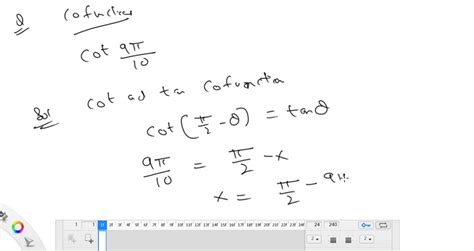 Q cofunction
cot 9π/10
Sol cot ad tan cofunction
cot (π/2 - θ) = tanθ
9π/10 = π/2 - x
x = π/2 - 9π
1 1 24 240
2 2